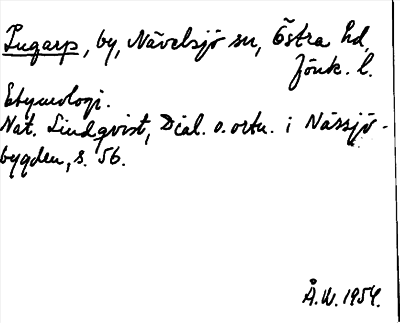 Pugarp, by, Nävelsjö sn, Östra hd,
Jönk. l.
Etymologi.
Nat. Lindqvist, Dial. o. ortn. i Nässjö-
bygden, s. 56.
Å.W. 1954.